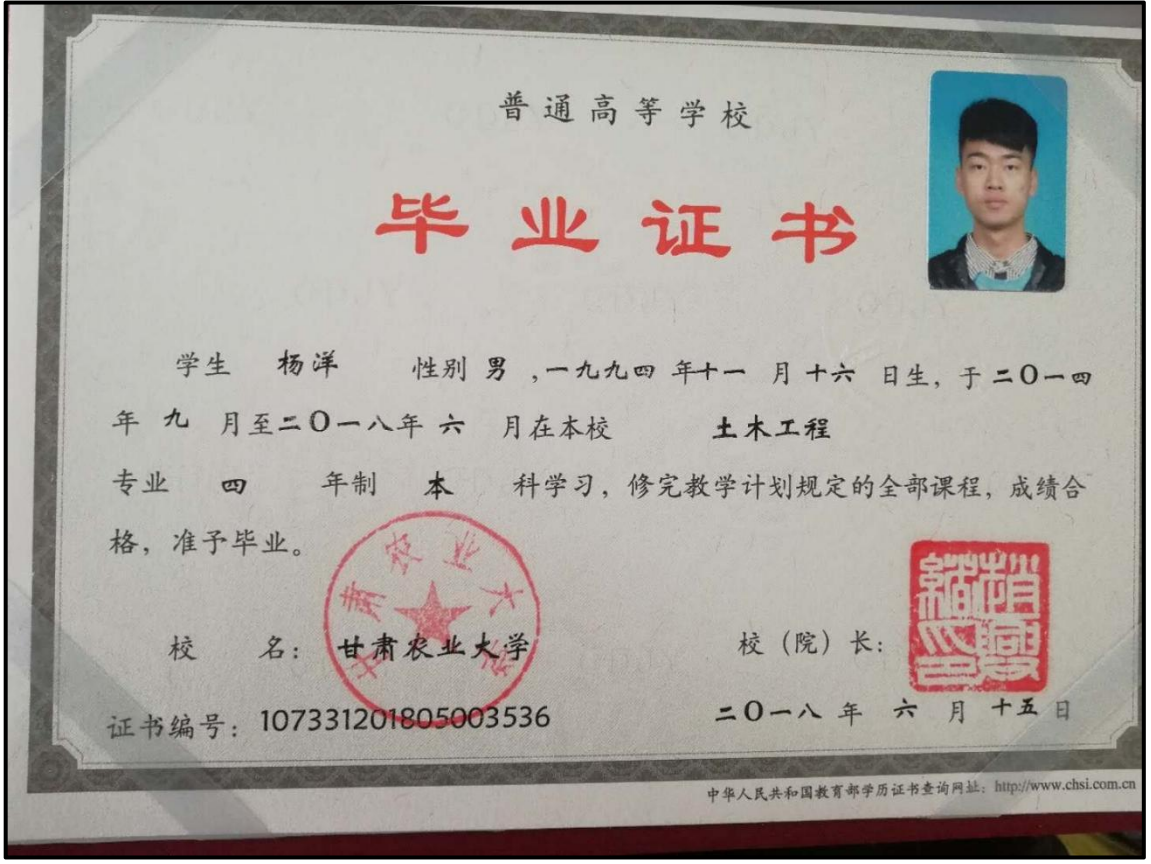 普通高等学校
毕业证书
学生 杨洋 性别 男 ,一九九四 年十一 月 十六 日生, 于 二〇一四
年 九 月至二〇一八年 六 月在本校 土木工程
专业 四 年制 本 科学习, 修完教学计划规定的全部课程, 成绩合
格, 准予毕业。
甘肃农业大学
校 名: 甘肃农业大学 校 (院) 长:
证书编号: 107331201805003536 二〇一八 年 六 月 十五 日
中华人民共和国教育部学历证书查询网址: http://www.chsi.com.cn